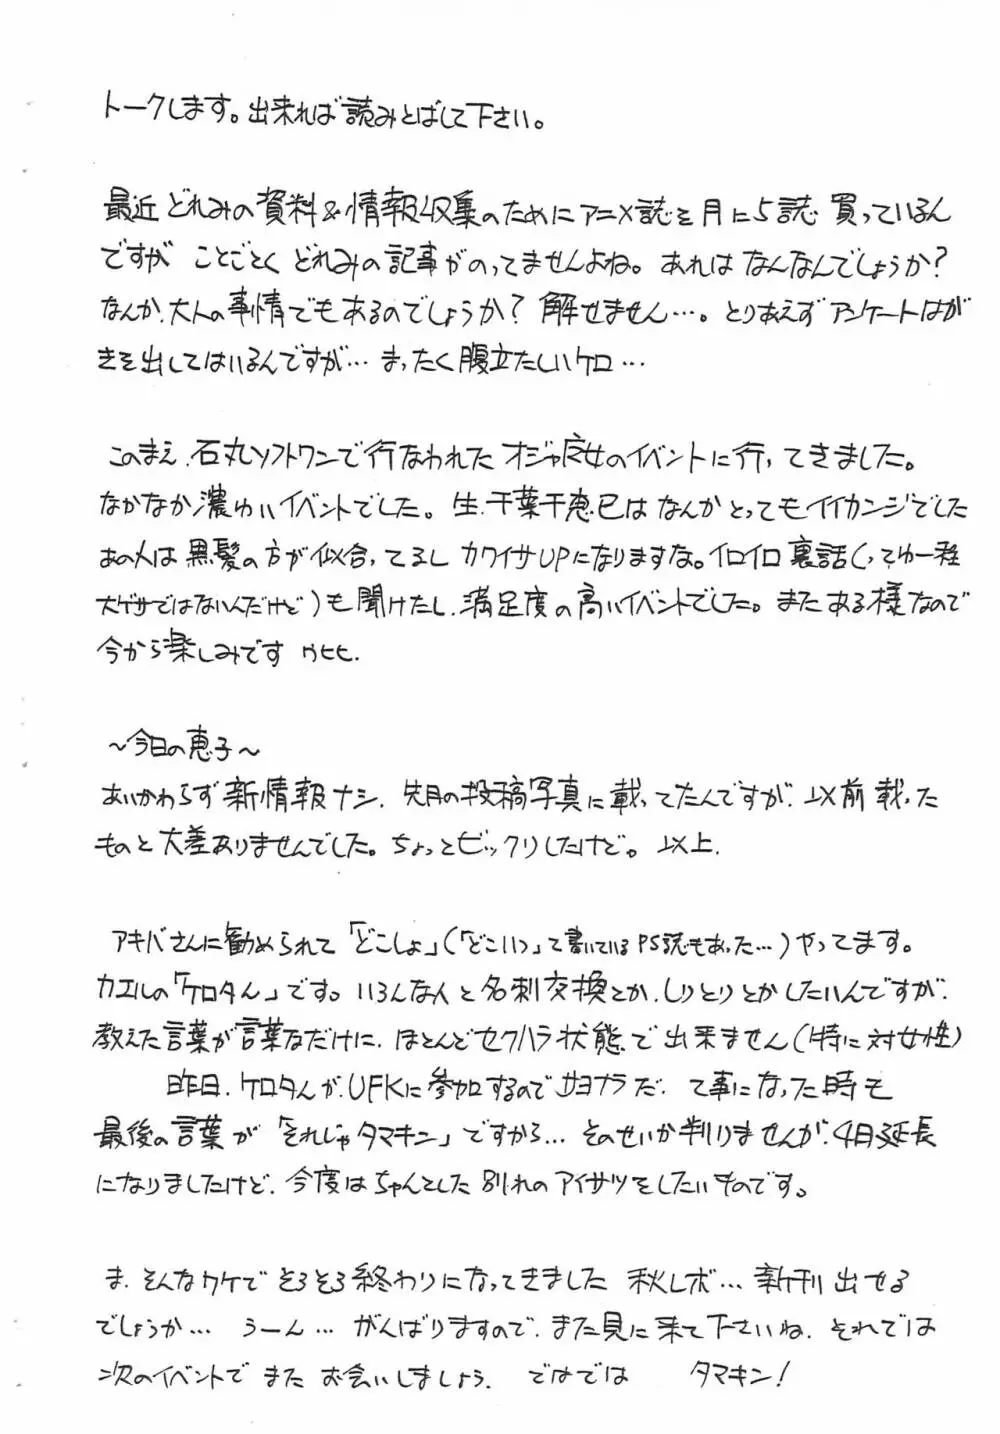 トークします。出来れば読みとばして下さい。
最近どれみの資料&情報収集のためにアニメ誌を月に5誌買っているん
ですがことごとくどれみの記事がのってませんよね。あれはなんなんでしょうか?
なんか、大人の事情でもあるのでしょうか?解せません…。とりあえずアンケートはが
きを出してはいるんですが…まったく腹立たしいケロ…
このまえ、石丸ソフトワンで行なわれたオジャ魔女のイベントに行ってきました。
なかなか濃ゆいイベントでした。生、千葉千恵巳はなんかとってもイイカンジでした
あの人は黒髪の方が似合ってるしカワイサUPになりますな。イロイロ裏話(ってゆー程
大ゲサではないんだけど)も聞けたし、満足度の高いイベントでした。またある様なので
今から楽しみです ウヒヒ.
~今日の恵子~
あいかわらず新情報ナシ.先月の投稿写真に載ってたんですが、以前載った
ものと大差ありませんでした。ちょっとビックリしたけど。以上.
アキバさんに勧められて「どこしょ」(「どこいつ」て書いているPS誌もあった…)やってます。
カエルの「ケロタん」です。いろんな人と名刺交換とか、しりとりとかしたいんですが、
教えた言葉が言葉なだけに、ほとんどセクハラ状態で出来ません(特に対女性)
昨日、ケロタんが、UFKに参加するのでサヨナラだ、て事になった時も
最後の言葉が「それじゃタマキン」ですから…そのせいか判りませんが、4日延長
になりましたけど、今度はちゃんとした別れのアイサツをしたいものです。
ま、そんなワケでそろそろ終わりになってきました 秋レボ…新刊出せる
でしょうか…うーん…がんばりますので、また見に来て下さいね.それでは
次のイベントでまたお会いしましょう.ではでは タマキン!